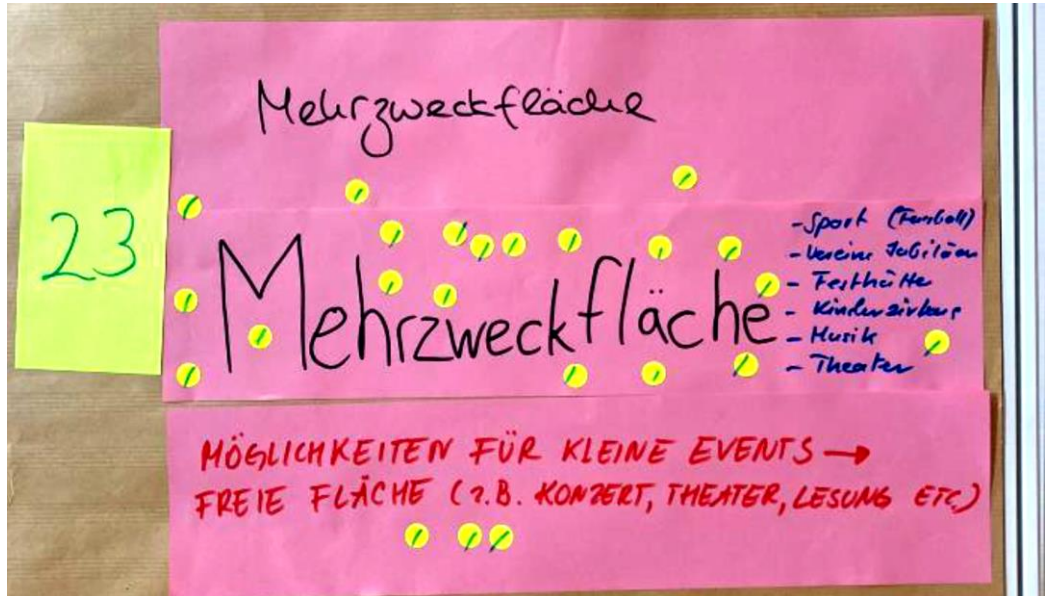 Mehrzweckfläche
23
Mehrzweckfläche
- Sport (Faustball)
- Vereine Jubiläen
- Festhütte
- Kinderzirkus
- Musik
- Theater
MÖGLICHKEITEN FÜR KLEINE EVENTS →
FREIE FLÄCHE (z.B. KONZERT, THEATER, LESUNG ETC.)